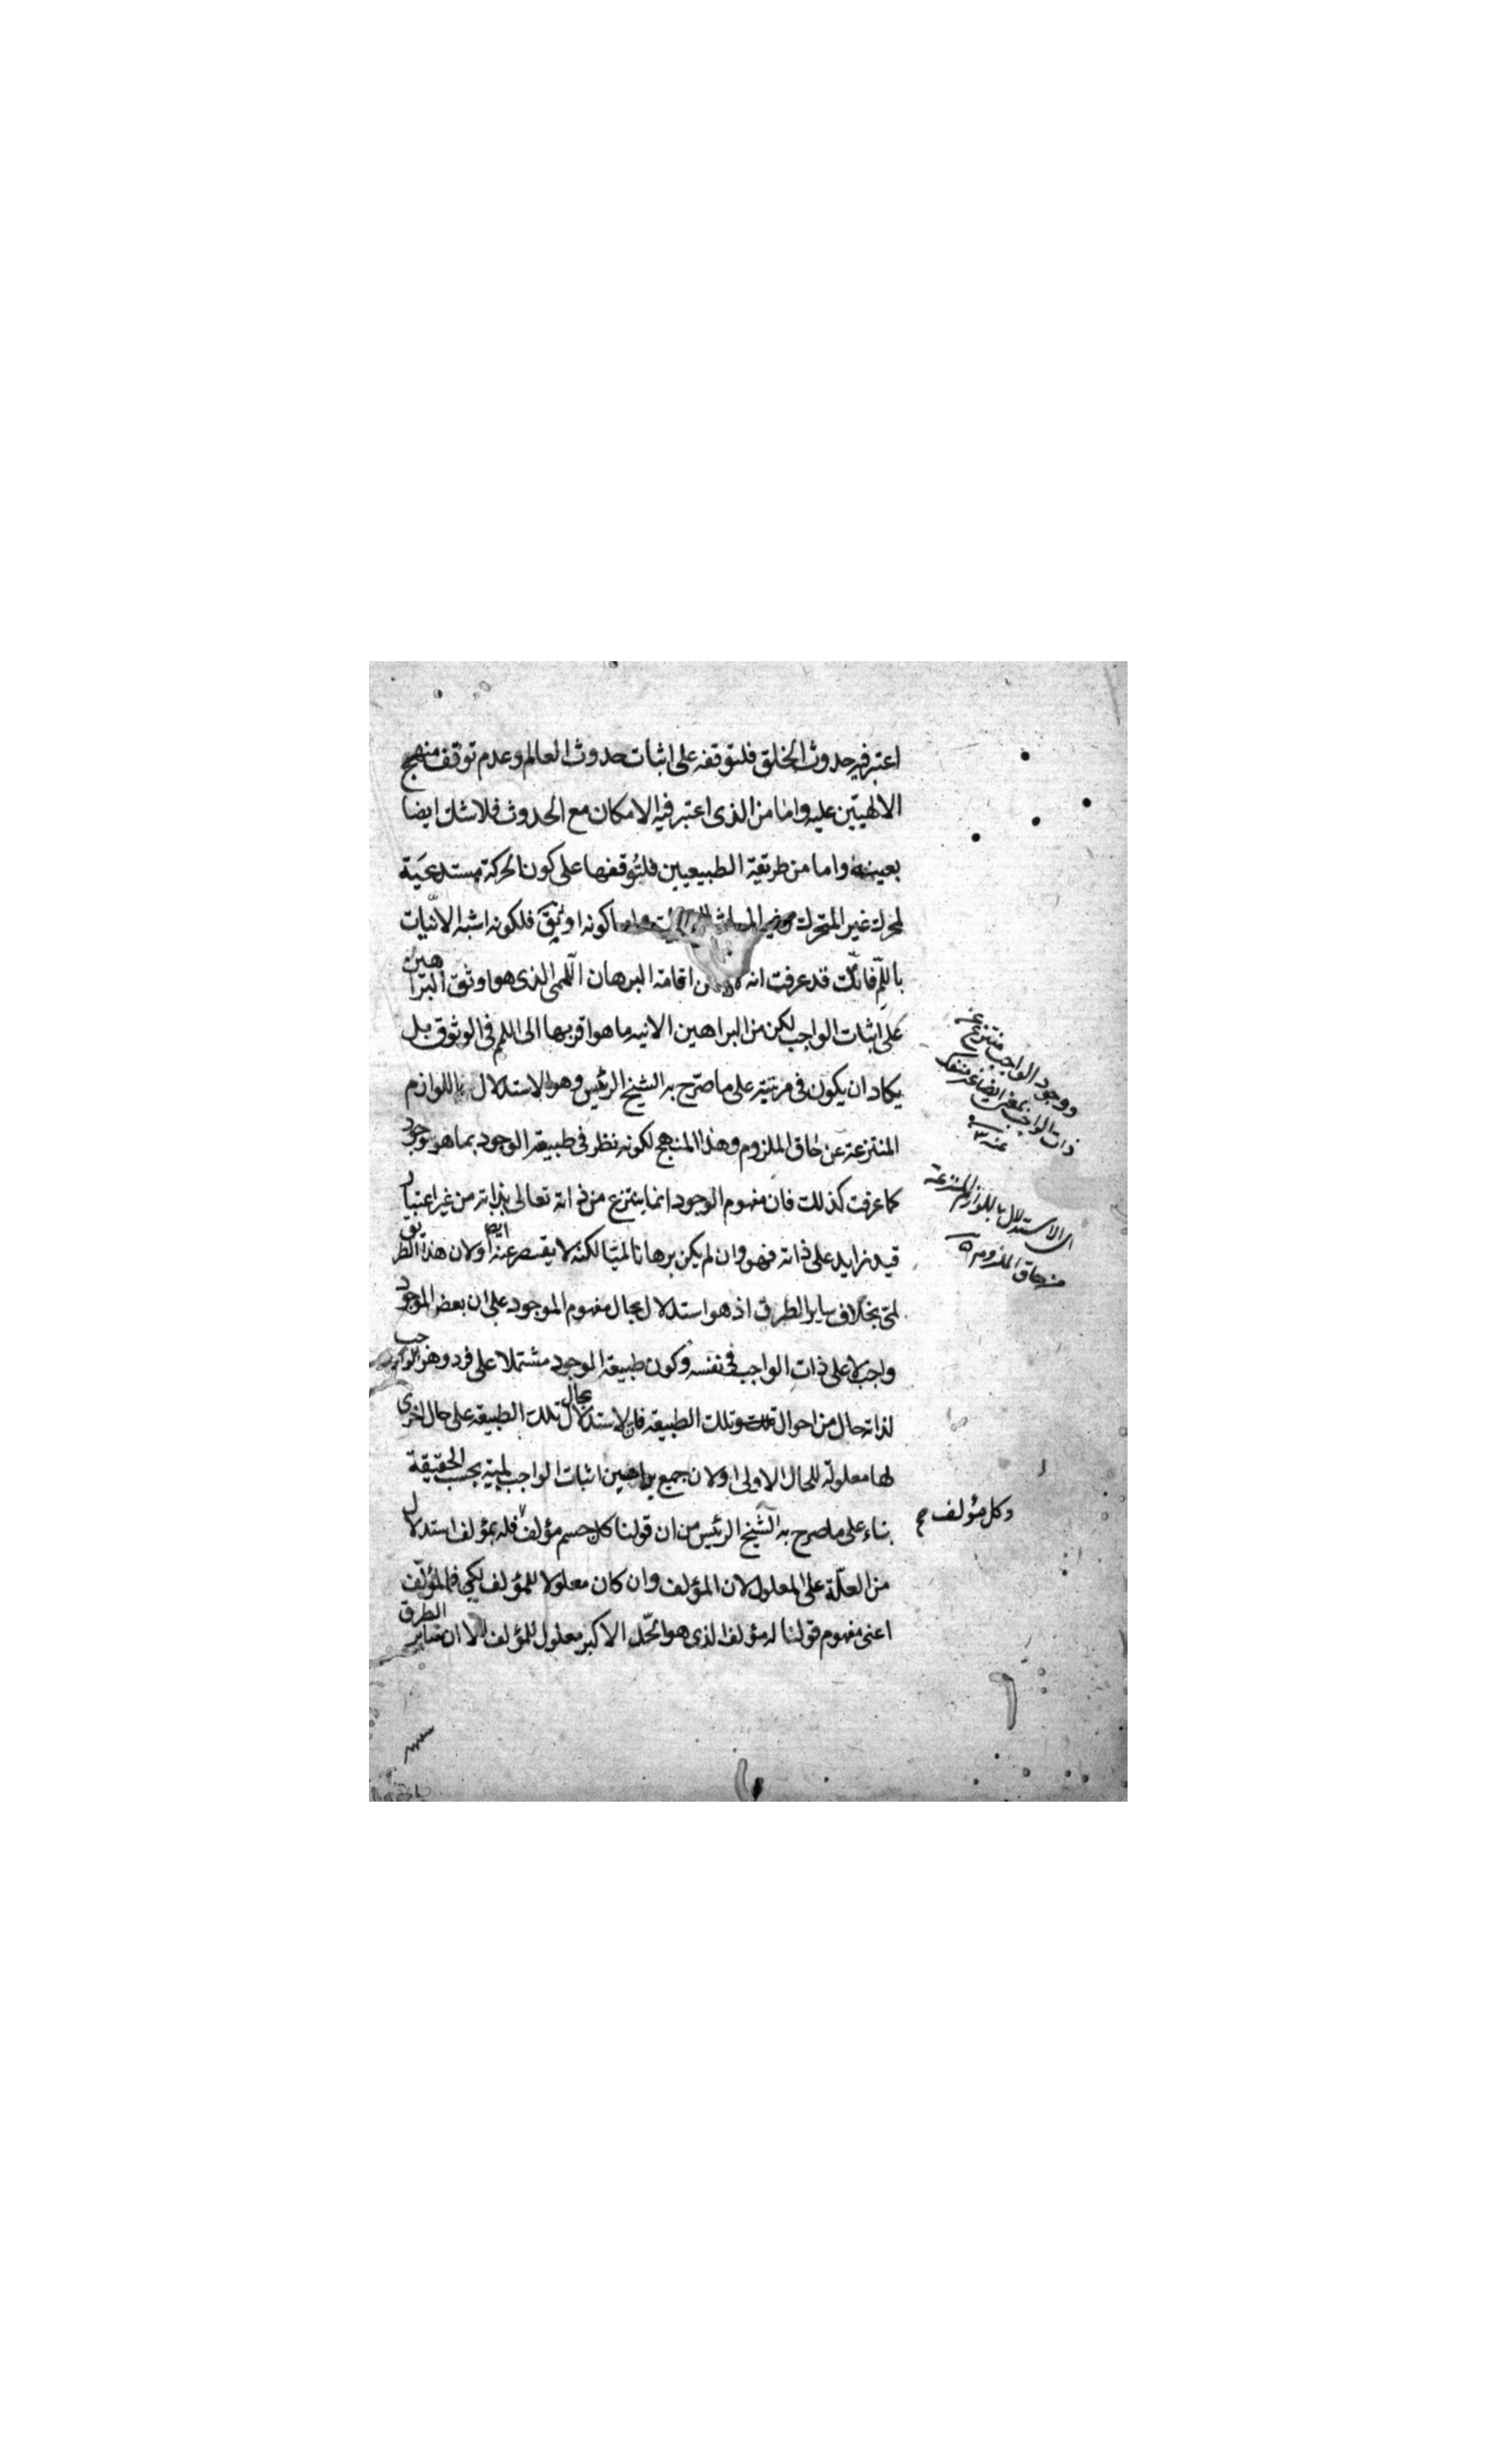 اعتبر فيه حدوث الخلق فلتوقفه على اثبات حدوث العالم وعدم توقف منهج
الالهيّين عليه واما من الذى اعتبر فيه الامكان مع الحدوث فلاشك ايضا
بعينه واما من طريقة الطبيعيين فلتوقفها على كون الحركة مستدعية
لمحرك غير المتحرك كونه اوثق فلكونه اشبه الانّيات
باللّم فانّك قد عرفت انه اقامة البرهان اللّمى الذى هو اوثق البراهين
على اثبات الواجب لكن من البراهين الانيه ما هو اقربها الى اللم فى الوثوق بل
يكاد ان يكون فى مرتبته على ما صرّح به الشيخ الرئيس وهو الاستدلال باللوازم
المنتزعة عن حاق الملزوم وهذا المنهج لكونه نظر فى طبيعة الوجود بما هو وجود
كما عرفت كذلك فان مفهوم الوجود انما ينتزع من ذاته تعالى بذاته من غير اعتبار
قيد زايد على ذاته فهو وان لم يكن برهانا لميّا لكنه لا يقصر عنه ايضا ولان هذا الطريق
لمّى بخلاف ساير الطرق اذ هو استدلال بحال مفهوم الموجود على ان بعض الموجود
واجب لا على ذات الواجب فى نفسه وكون طبيعة الوجود مشتملا على فرد وهو الواجب
لذاته حال من احوال تلك الطبيعة فالاستدلال بحال تلك الطبيعة على حال اخرى
لها معلولة للحال الاولى اولان جميع براهين اثبات الواجب لمية بحسب الحقيقة
بناء على ما صرح به الشيخ الرئيس من ان قولنا كل جسم مؤلف فله مؤلف استدلال
من العلّة على المعلول لان المؤلف وان كان معلولا للمؤلف لكن فالمؤلّف
اعنى مفهوم قولنا له مؤلف الذى هو الحدّ الاكبر معلول للمؤلف الا ان ساير الطرق
ووجود الواجب منتزع عن
ذات الواجب بمعنى ايضا غير منفك
عنه
اى الاستدلال باللوازم المنتزعة
من حاق الملزوم
وكل مؤلف صح